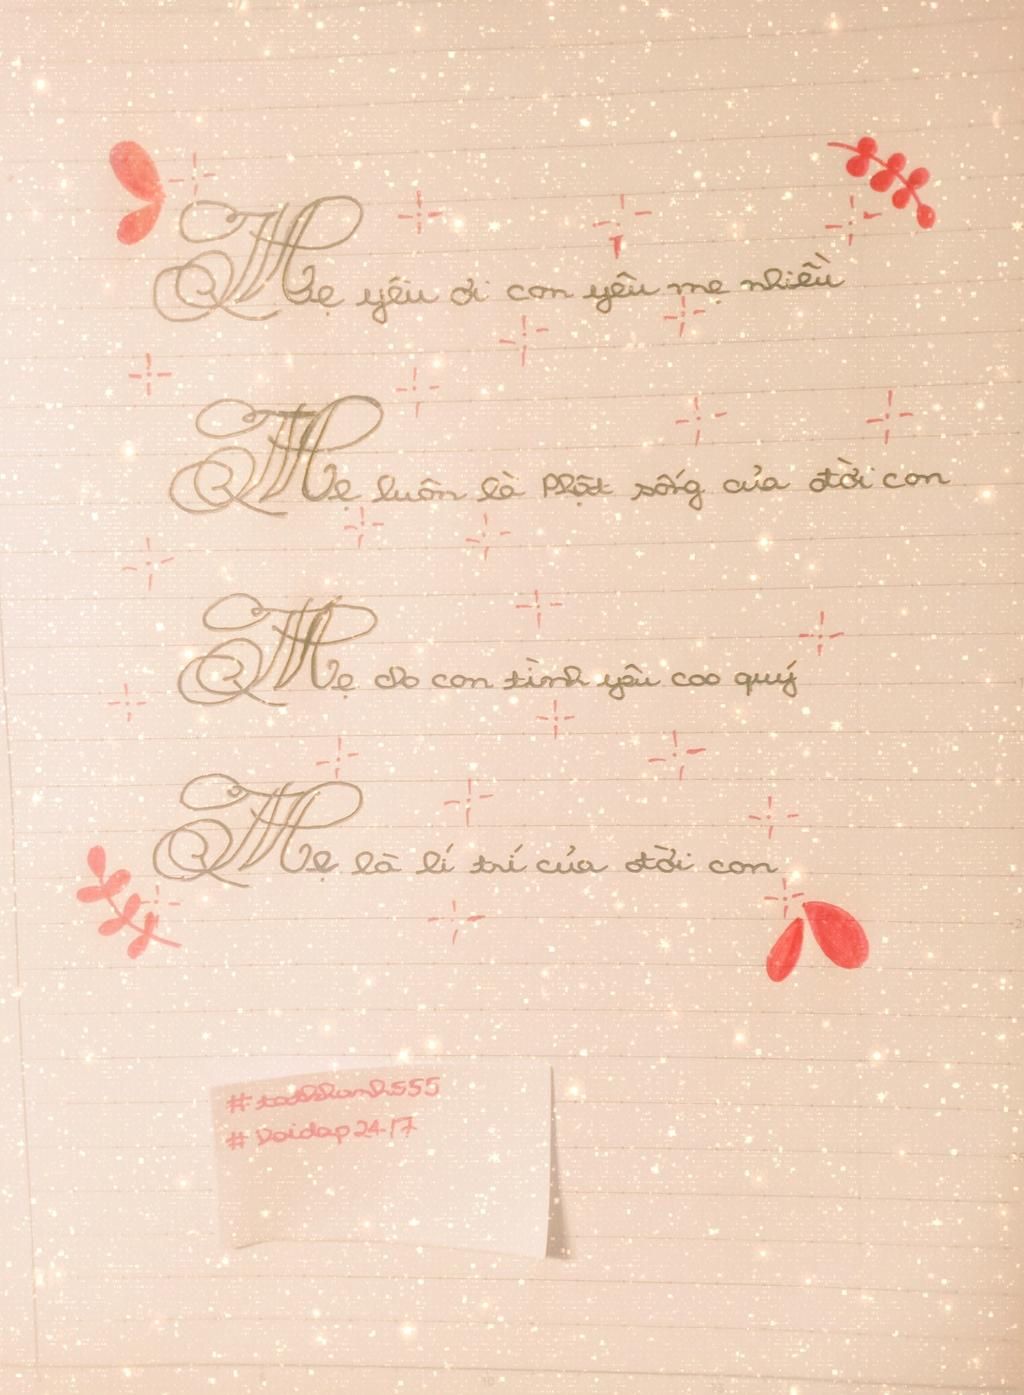 Mẹ yêu ơi con yêu mẹ nhiều
Mẹ luôn là Phật sống của đời con
Mẹ cho con tình yêu cao quý
Mẹ là lí trí của đời con
# Voidap24-17